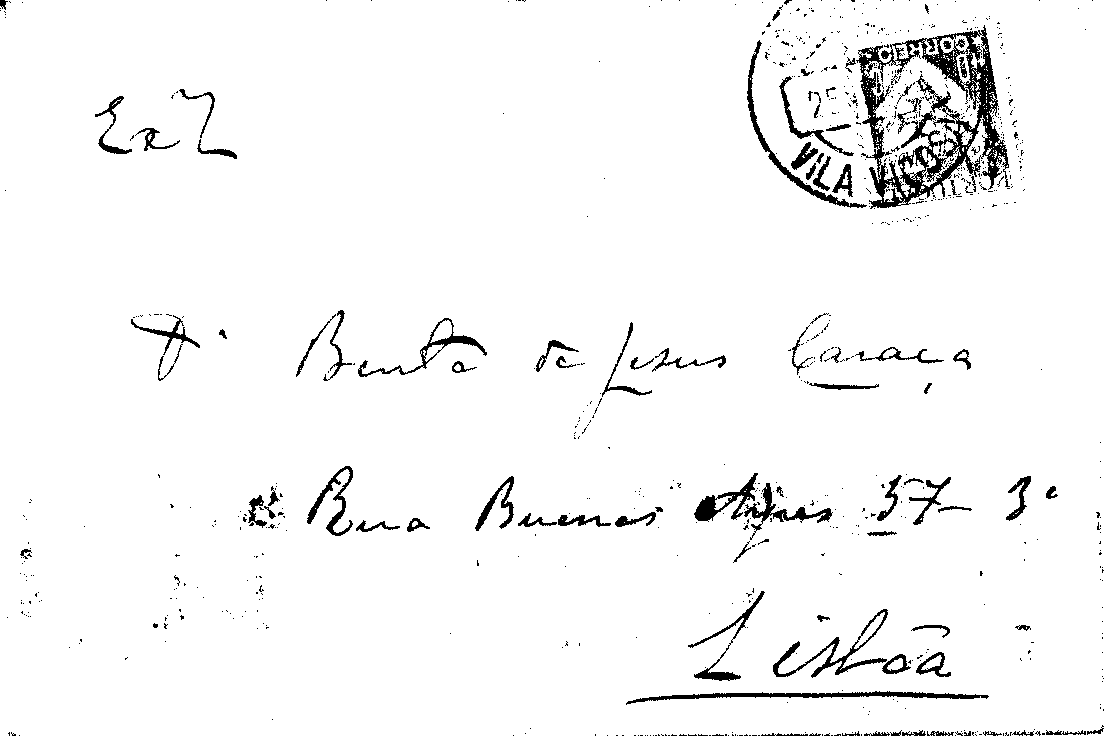 CORREIO
25
VILA VIÇOSA
PORTUGAL
Dr Bento de Jesus Caraça
Rua Buenos Ayres 37 - 3º
Lisbôa